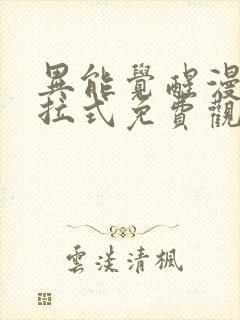 異能覺醒漫
拉式免費觀
雲淡清楓